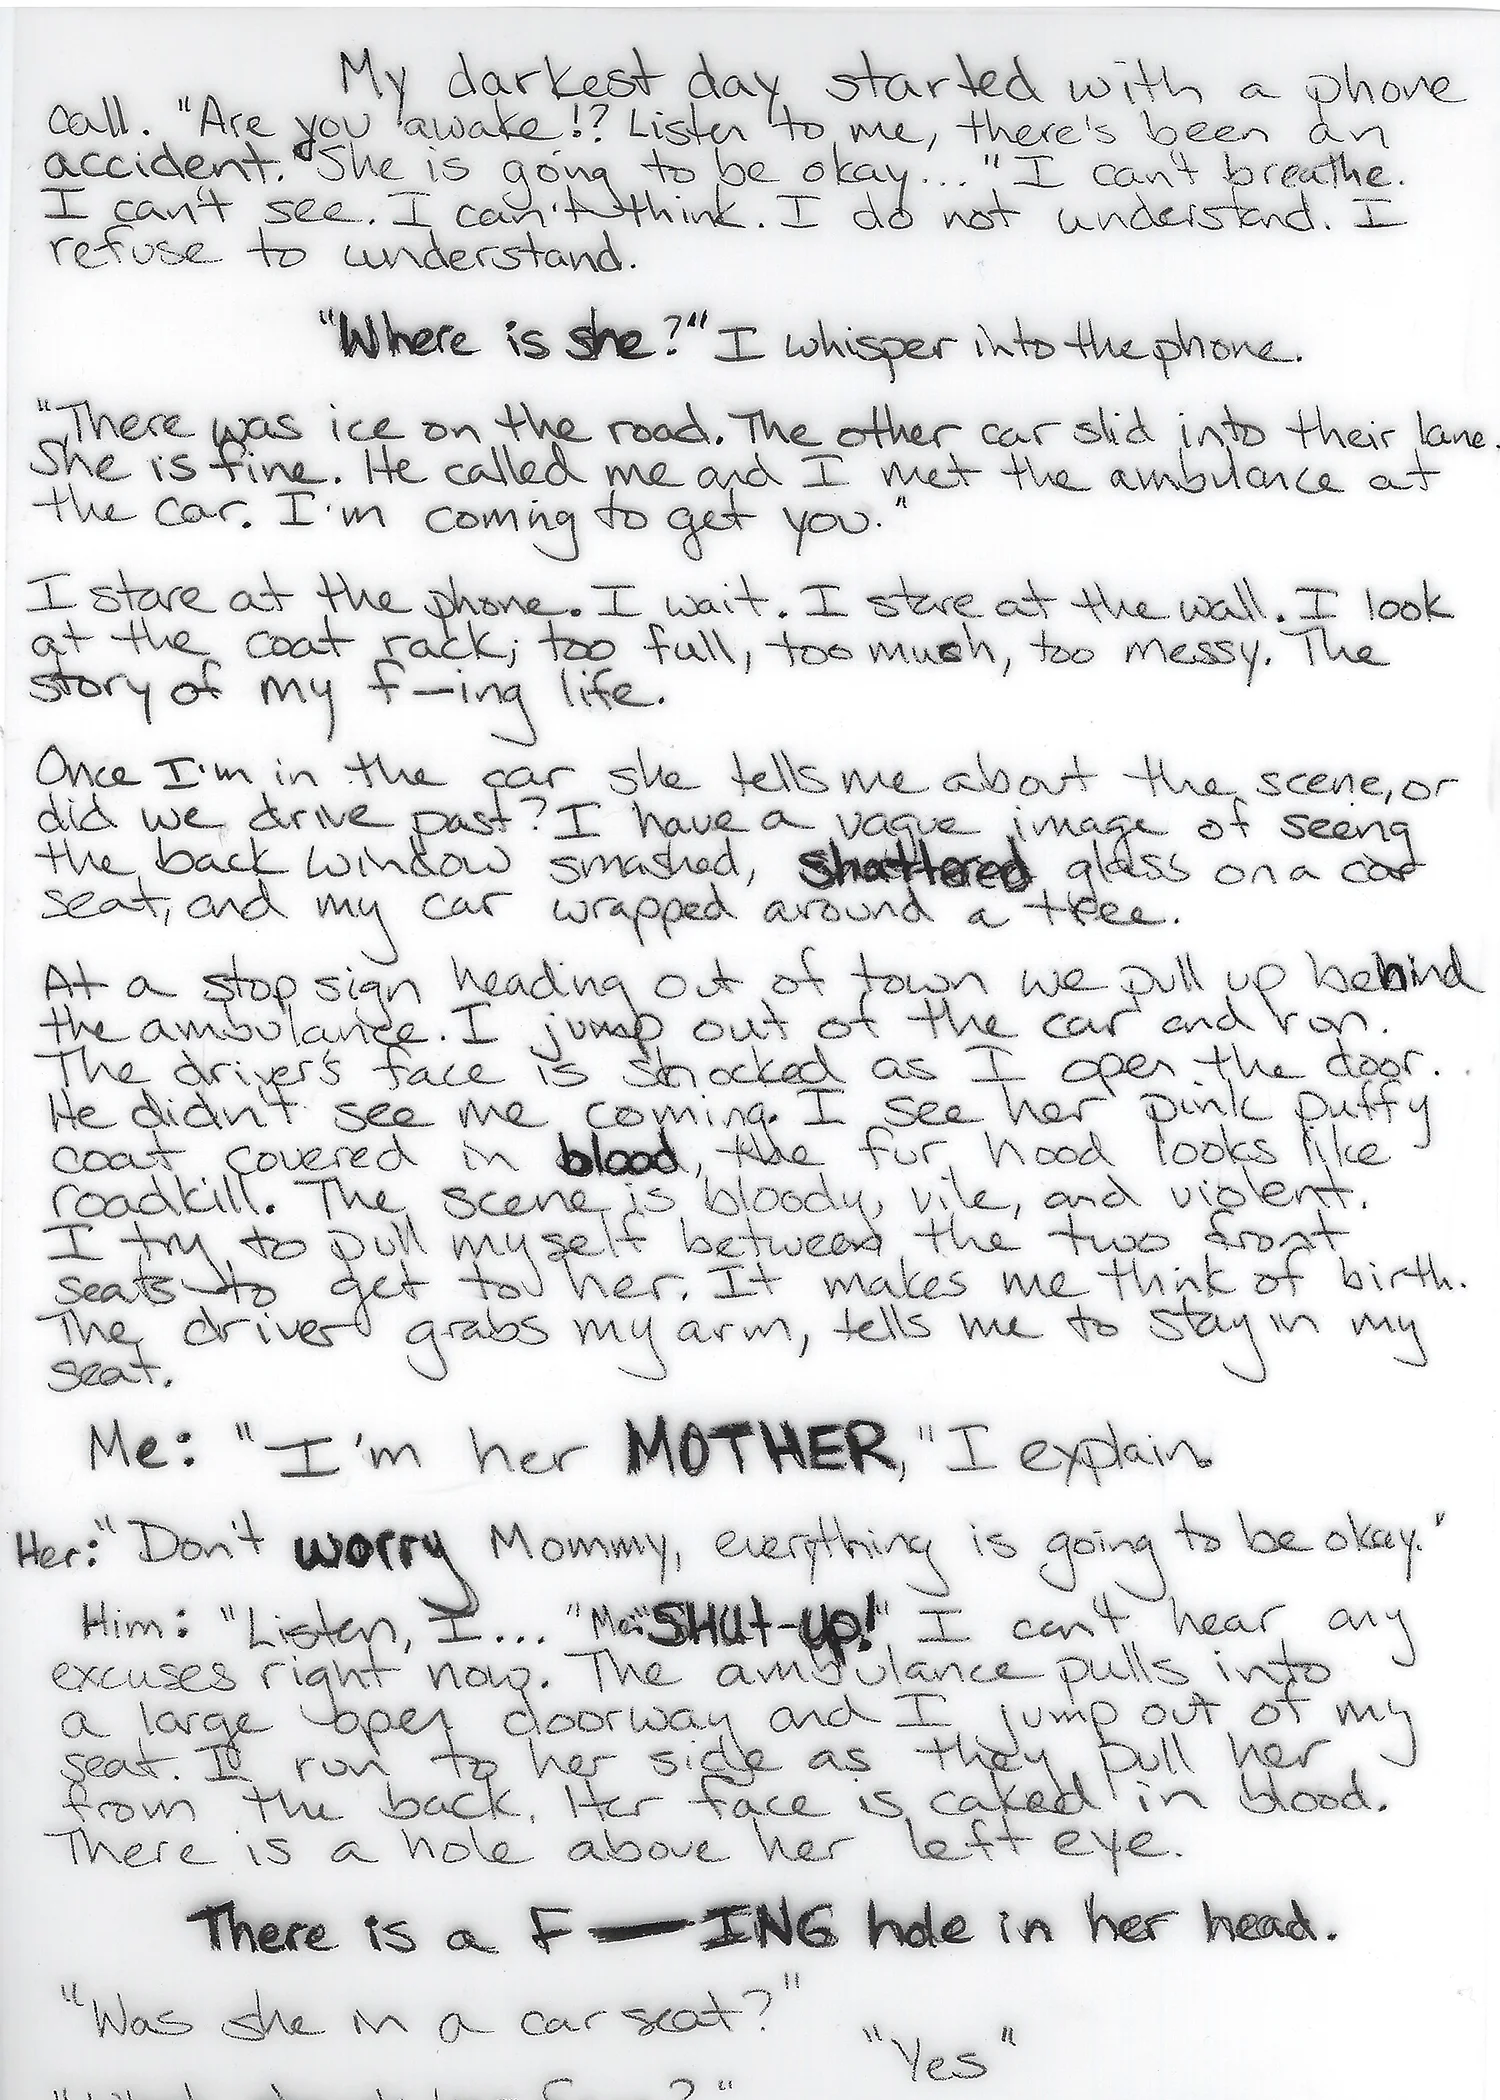 My darkest day started with a phone
call. "Are you awake!? Listen to me, there's been an
accident. She is going to be okay..." I can't breathe.
I can't see. I can't think. I do not understand. I
refuse to understand.
"Where is she?" I whisper into the phone.
"There was ice on the road. The other car slid into their lane.
She is fine. He called me and I met the ambulance at
the car. I'm coming to get you."
I stare at the phone. I wait. I stare at the wall. I look
at the coat rack; too full, too much, too messy. The
story of my f—ing life.
Once I'm in the car she tells me about the scene, or
did we drive past? I have a vague image of seeing
the back window smashed, shattered glass on a car
seat, and my car wrapped around a tree.
At a stop sign heading out of town we pull up behind
the ambulance. I jump out of the car and run.
The driver's face is shocked as I open the door.
He didn't see me coming. I see her pink puffy
coat covered in blood, the fur hood looks like
roadkill. The scene is bloody, vile, and violent.
I try to pull myself between the two front
seats to get to her. It makes me think of birth.
The driver grabs my arm, tells me to stay in my
seat.
Me: "I'm her MOTHER," I explain.
Her: "Don't worry Mommy, everything is going to be okay."
Him: "Listen, I... "Me: "SHUT-up!" I can't hear any
excuses right now. The ambulance pulls into
a large open doorway and I jump out of my
seat. I run to her side as they pull her
from the back. Her face is caked in blood.
There is a hole above her left eye.
There is a F—ING hole in her head.
"Was she in a car seat?"
"Yes"